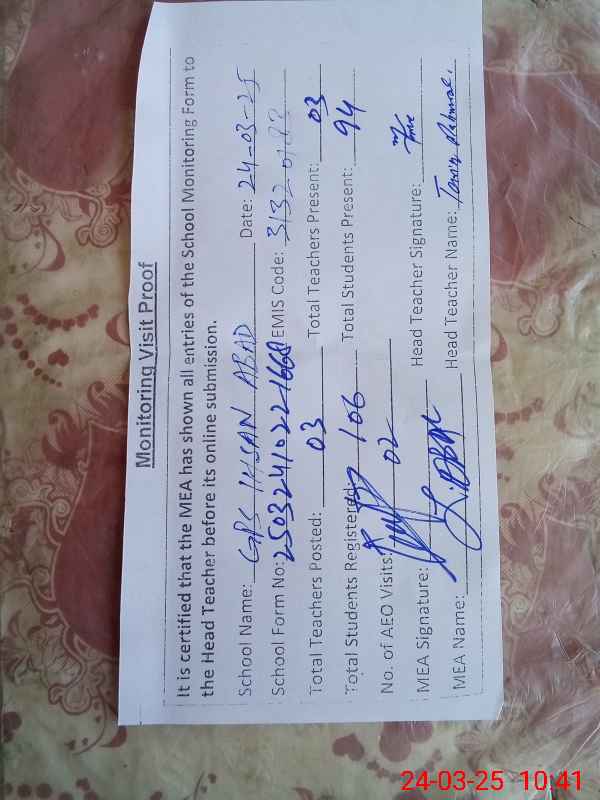 Monitoring Visit Proof
It is certified that the MEA has shown all entries of the School Monitoring Form to
the Head Teacher before its online submission.
School Name: GPS IHSAN ABAD Date: 24-03-25
School Form No: EMIS Code:
Total Teachers Posted: 03 Total Teachers Present: 03
Total Students Registered: 106 Total Students Present: 94
No. of AEO Visits: 02
MEA Signature: Head Teacher Signature:
MEA Name: Head Teacher Name:
24-03-25 10:41